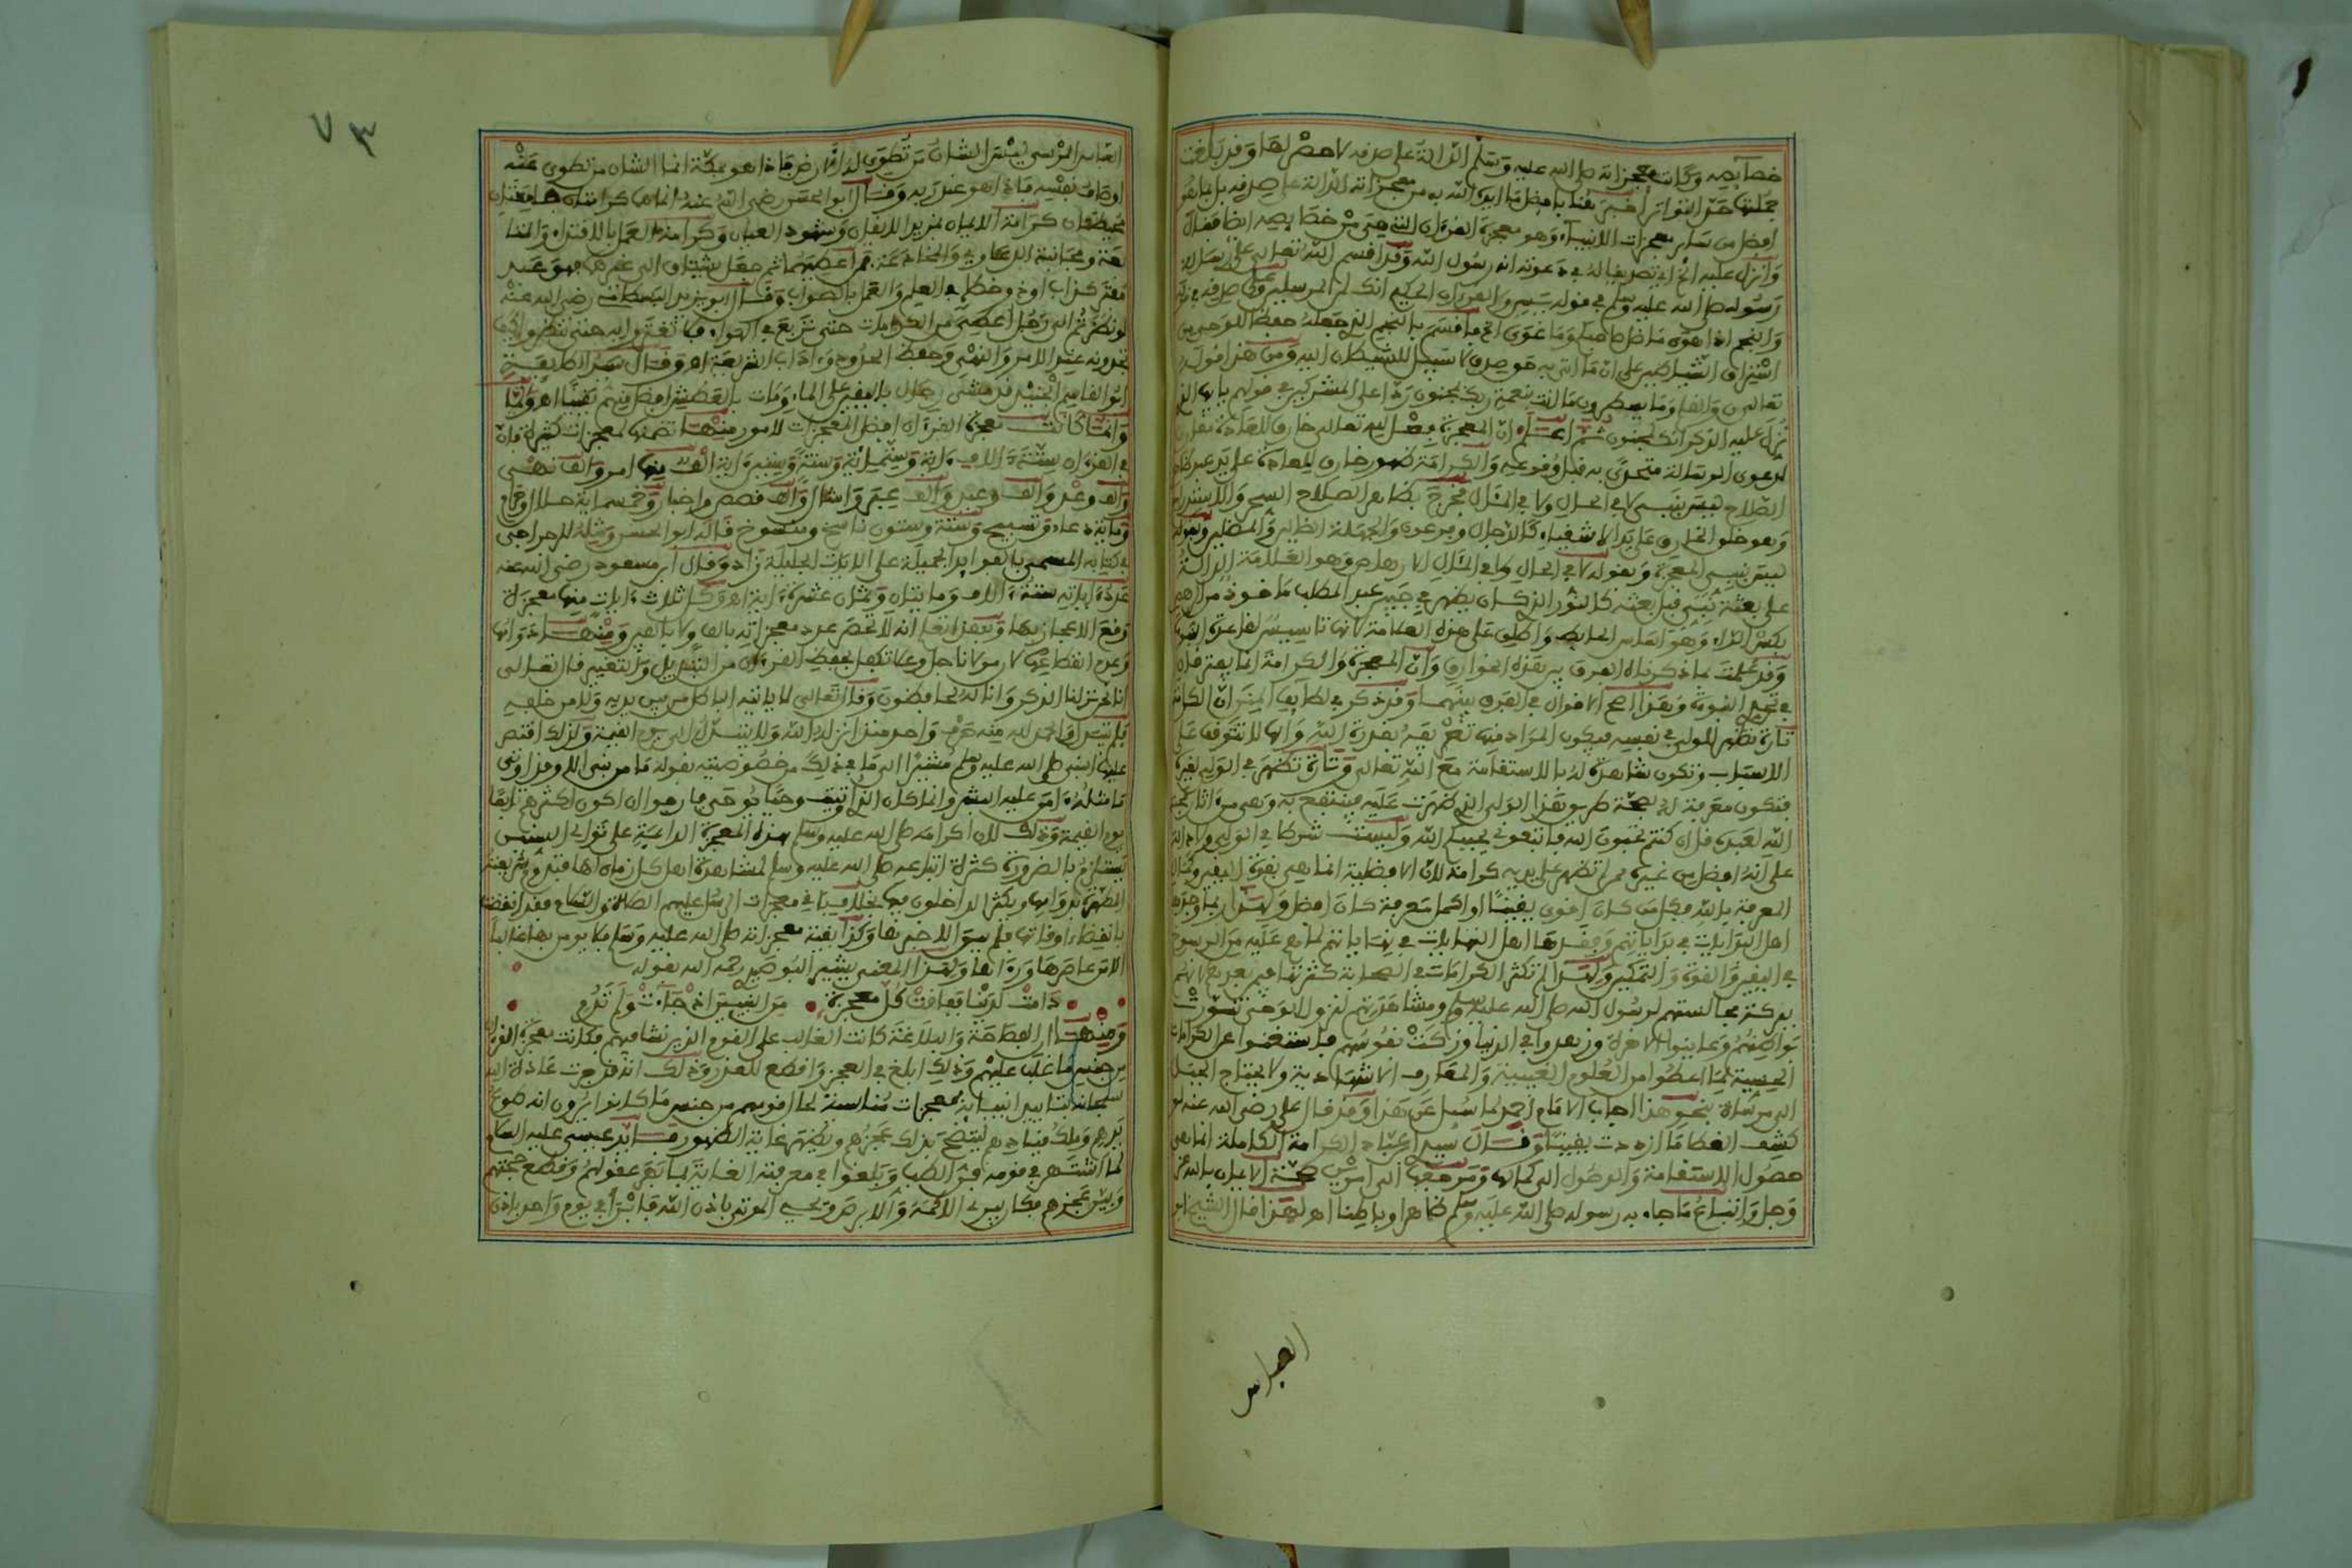 خصايصه وكانت معجزاته صلى الله عليه وسلم الدالة على صدقه لا حصر لها وقد بلغت
جملتها حد التواتر أخبر هنا بافضل ما ايده الله به من معجزاته الدالة على صدقه بل ما هو
افضل من سائر معجزات الانبياء وهو معجزة القرءان التي هي من خصايصه ايضا فقال
وانزل عليه تصديقا له في دعوته انه رسول الله وقد اقسم الله تعالى على رسالة
رسوله صلى الله عليه وسلم في قوله يس والقرءان الحكيم انك لمن المرسلين وعلى صدقه في
والنجم اذا هوى ما ضل صاحبكم وما غوى فاقسم بالنجم الذي جعله حفظا للوحي من
استراق الشياطين على ان ما اتى به حق وصدق لا سبيل للشيطان اليه ومن هذا قوله
تعالى ن والقلم وما يسطرون ما انت بنعمة ربك بمجنون ردا على المشركين في قولهم يا ايها الذي
نزل عليه الذكر انك لمجنون ثم اعلم ان المعجزة فضل الله تعالى خارق للعادة مقارن
لدعوى الرسالة متحدى به قبل وقوعه والكرامة ظهور خارق للعادة على يد عبد ظاهر
الصلاح ليس بنبي لا في الحال ولا في المآل فخرج بظاهر الصلاح السحر والاستدراج
وهو خلق الخارق على يد الاشقياء كالدجال وفرعون والجهلة المضلين وبقوله
ليس بنبي المعجزة وبقوله لا في الحال ولا في المآل الارهاص وهو العلامة الدالة
على بعثة نبي قبل بعثه كالنور الذي كان يظهر في جبين عبد المطلب ماخوذ من الرهص
بكسر الراء وهو اساس الحائط واطلق على هذه العلامة لانها تاسيس لقاعدة النبوة
وقد علمت بما ذكرناه الفرق بين هذه الخوارق وان المعجزة والكرامة انما يفترقان
في تحدي النبوة وهذا اصح الاقوال في الفرق بينهما وقد ذكر في لطايف المنن ان الكرامة
تارة تظهر للولي في نفسه فيكون المراد منها تعريفه بقدرة الله وانها لا تتوقف على
الاسباب وتكون شاهدة له بالاستقامة مع الله تعالى وتارة تظهر في الولي لغيره
فتكون معرفة له بصحة طريق هذا الولي الذي ظهرت عليه فينتفع به وهي من اثار محبة
الله لعبده قل ان كنتم تحبون الله فاتبعوني يحببكم الله وليست شرطا في الولي ولا دالة
على انه افضل من غيره ممن لم تظهر على يديه كرامة لان الافضلية انما هي بقوة اليقين وكمال
المعرفة بالله فكل من كان اقوى يقينا او اكمل معرفة كان افضل ولهذا ربما وجدها
اهل البدايات في بداياتهم وفقدها اهل النهايات في نهاياتهم لما هم عليه من الرسوخ
في اليقين والقوة والتمكين ولهذا لم تكثر الكرامات في الصحابة كثرتها فيمن بعدهم لانهم
ببركة مجالستهم لرسول الله صلى الله عليه وسلم ومشاهدتهم لنزول الوحي تنورت
بواطنهم وعاينوا الاخرة وزهدوا في الدنيا وزكت نفوسهم فاستغنوا عن الكرامات
الحسية بما اعطوا من العلوم الغيبية والمعارف الاشهادية ولا يحتاج الجبل
الى مرساة بنحو هذا اجاب الامام احمد لما سئل عن هذا وقد قال علي رضي الله عنه لو
كشف الغطا ما ازددت يقينا وقال سيدي ابن عباد الكرامة الكاملة انما هي
حصول الاستقامة والوصول الى كمالها ومرجعها الى امرين صحة الايمان بالله عز
وجل واتباع ما جاء به رسوله صلى الله عليه وسلم ظاهرا وباطنا اه ولهذا قال الشيخ ابو
العباس
٧٣
العباس المرسي ليس الشان من تطوى له الارض فاذا هو بمكة انما الشان من تطوى عنه
اوصاف نفسه فاذا هو عند ربه وقال ابو الحسن رضي الله عنه انما هي كرامتان جامعتان
محيطتان كرامة الايمان بمزيد الايقان وشهود العيان وكرامة العمل بالاقتداء والمتا
بعة ومجانبة الدعاوي والمخادعة فمن اعطيهما ثم جعل يشتاق الى غيرهما فهو عبد
مفتر كذاب او ذو خطإ في العلم والعمل بالصواب وقال ابو يزيد البسطامي رضي الله عنه
لو نظرتم الى رجل اعطي من الكرامات حتى تربع في الهواء فلا تغتروا به حتى تنظروا كيف
تجدونه عند الامر والنهي وحفظ الحدود وءاداب الشريعة اه وقال سيد الطايفة
ابو القاسم الجنيد قد مشى رجال باليقين على الماء ومات بالعطش افضل منهم يقينا اه
وانما كانت معجزة القرءان افضل المعجزات لامور منها تضمنها لمعجزات كثيرة فان
في القرءان ستة ءالاف ءاية وستمائة وستة وستين ءاية الف منها امر والف نهي
والف وعد والف وعيد والف عبر وامثال والف قصص واخبار وخمسماية حلال وحرام
وماية دعاء وتسبيح وستة وستون ناسخ ومنسوخ قاله ابو الحسن ومثله للمراحي
في كتابه المسمى بالفوايد الجميلة على الايات الجليلة زاد وقال ابن مسعود رضي الله عنه
عدد ءاياته ستة ءالاف ومايتان وثمان عشرة ءاية اه وكل ثلاث ءايات منها معجزة
وقع الاعجاز بها وبهذا تعلم انه لا تحصر عدد معجزاته بالف ولا بالفين ومنها دوامها
وعدم انقطاعها لان مولانا جل وعلا تكفل بحفظ القرءان من التبديل والتغيير قال تعالى
انا نحن نزلنا الذكر وانا له لحافظون وقال تعالى لا ياتيه الباطل من بين يديه ولا من خلفه
فلم يتبدل والحمد لله منه حرف واحد منذ انزله الله ولا يتبدل الى يوم القيامة ولذلك اقتصر
عليها النبي صلى الله عليه وسلم مشيرا الى ما في ذلك من خصوصيته بقوله ما من نبي الا وقد اوتي
ما مثله ءامن عليه البشر وانما كان الذي اوتيته وحيا يوحى فارجو ان اكون اكثرهم تابعا
يوم القيمة وذلك لان اكرامه صلى الله عليه وسلم بهذه المعجزة الدائمة على توالي السنين
يستلزم بالضرورة كثرة اتباعه صلى الله عليه وسلم لمشاهدة اهل كل زمان لها فيؤمن
بانقضاء اوقاتها فلم يبق الا خبرها وكذا بقية معجزاته صلى الله عليه وسلم فلا يؤمن بها غالبا
الا من عاصرها ورءاها ولهذا المعنى يشير البوصيري رحمه الله بقوله
دامت لدينا ففاقت كل معجزة من النبيين اذ جاءت ولم تدم
ومنها ان الفصاحة والبلاغة كانت الغالب على القوم الذين نشا فيهم فكانت معجزة القرءان
من جنس ما غلب عليهم وذلك ابلغ في العجز واقطع للعذر وذلك انه قد جرت عادة الله
سبحانه بتاييد انبيائه بمعجزات مناسبة لحال قومهم من جنس ما كانوا يرون انه طوع
يدهم وملك قيادهم ليتضح بذلك عجزهم ويظهر غاية الظهور فايد عيسى عليه السلام
لما اشتهر في قومه فن الطب وبلغوا في معرفته الغاية بما بهر عقولهم وقطع حجتهم
وبين عجزهم فكان يبرئ الاكمه والابرص ويحيي الموتى باذن الله فابرا في يوم واحد باذن